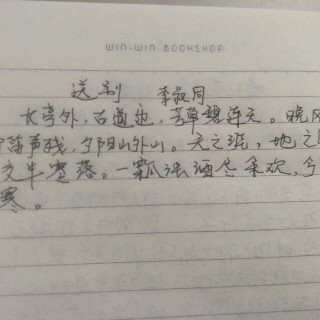 WIN-WIN BOOKSHOP
送别 李叔同
长亭外，古道边，芳草碧连天。晚风
笛声残，夕阳山外山。天之涯，地之
交半零落。一瓢浊酒尽余欢，今
寒。